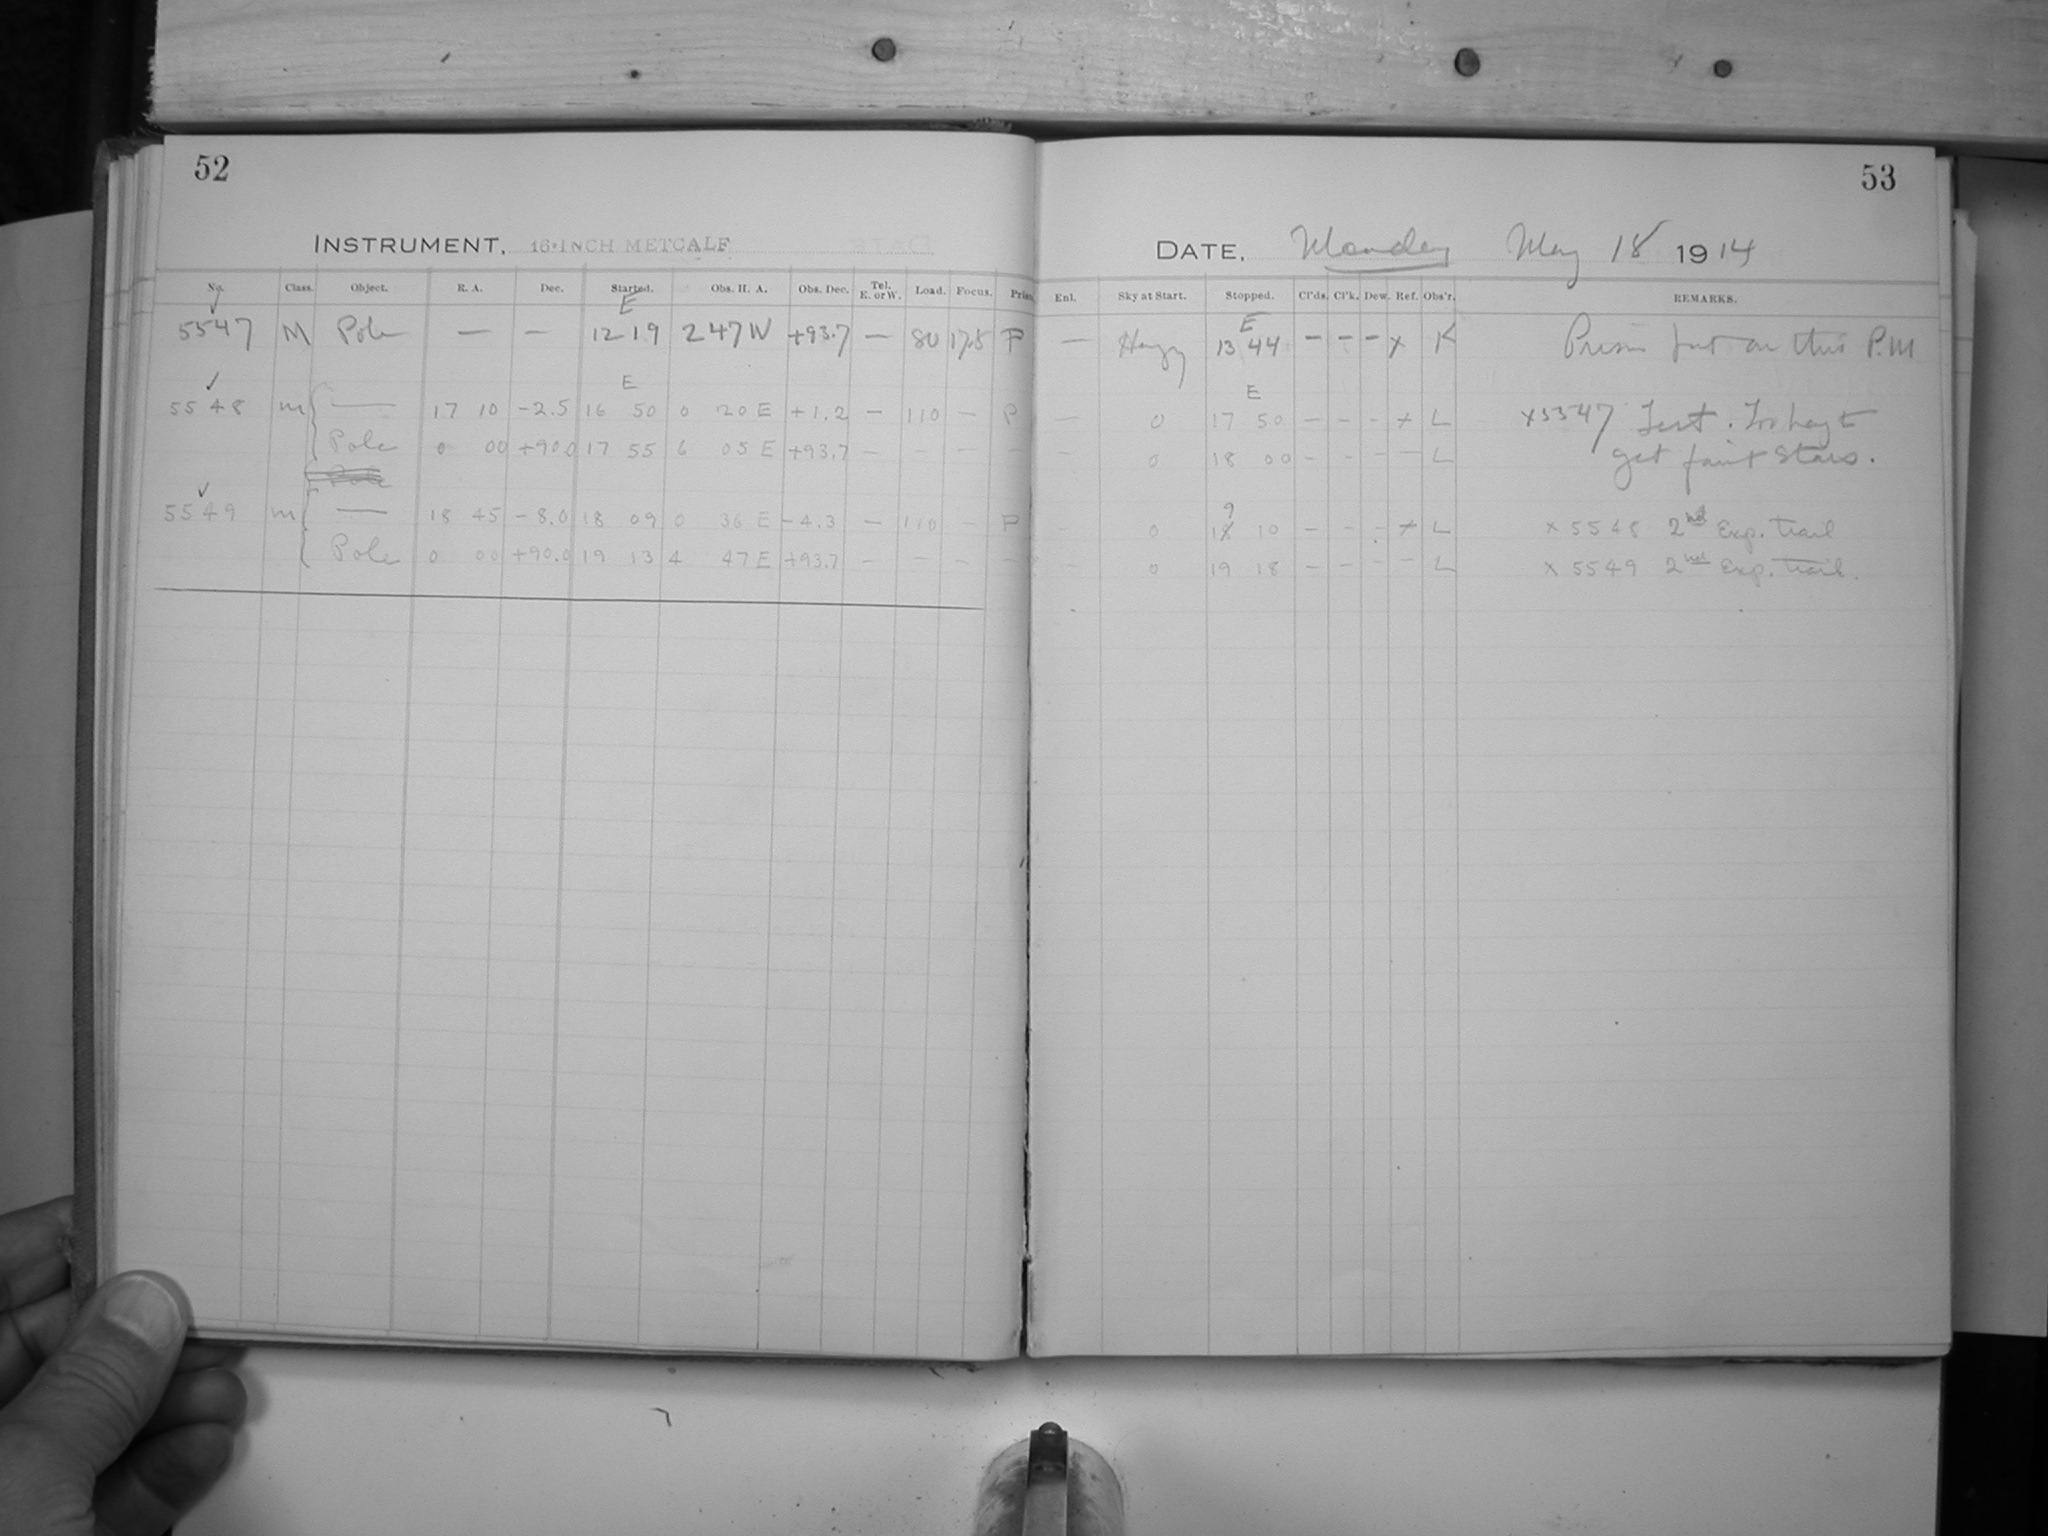 52
INSTRUMENT, 16-INCH METCALF
No. Class. Object. R. A. Dec. Started. Obs. H. A. Obs. Dec. Tel. E. or W. Load. Focus. Prism
E
5547 M Pole — — 12 19 2 47 W +93.7 — 80 17.5 P
E
5548 m — 17 10 -2.5 16 50 0 20 E +1.2 — 110 — P
Pole 0 00 +90.0 17 55 6 05 E +93.7 — — — —
5549 m — 18 45 -8.0 18 09 0 36 E -4.3 — 110 — P
Pole 0 00 +90.0 19 13 4 47 E +93.7 — — — —
53
DATE, Monday May 18 1914
Enl. Sky at Start. Stopped. Cl'ds. Cl'k. Dew. Ref. Obs'r. REMARKS.
E
— Hazy 13 44 — — — x K Prism put on this P.M
E
— 0 17 50 — — - x L x5547 Test. Too hazy to
— 0 18 00 - - - — L get faint stars.
9
- 0 18 10 — - - x L x 5548 2nd Exp. trail
— 0 19 18 — - - — L x 5549 2nd Exp. trail.